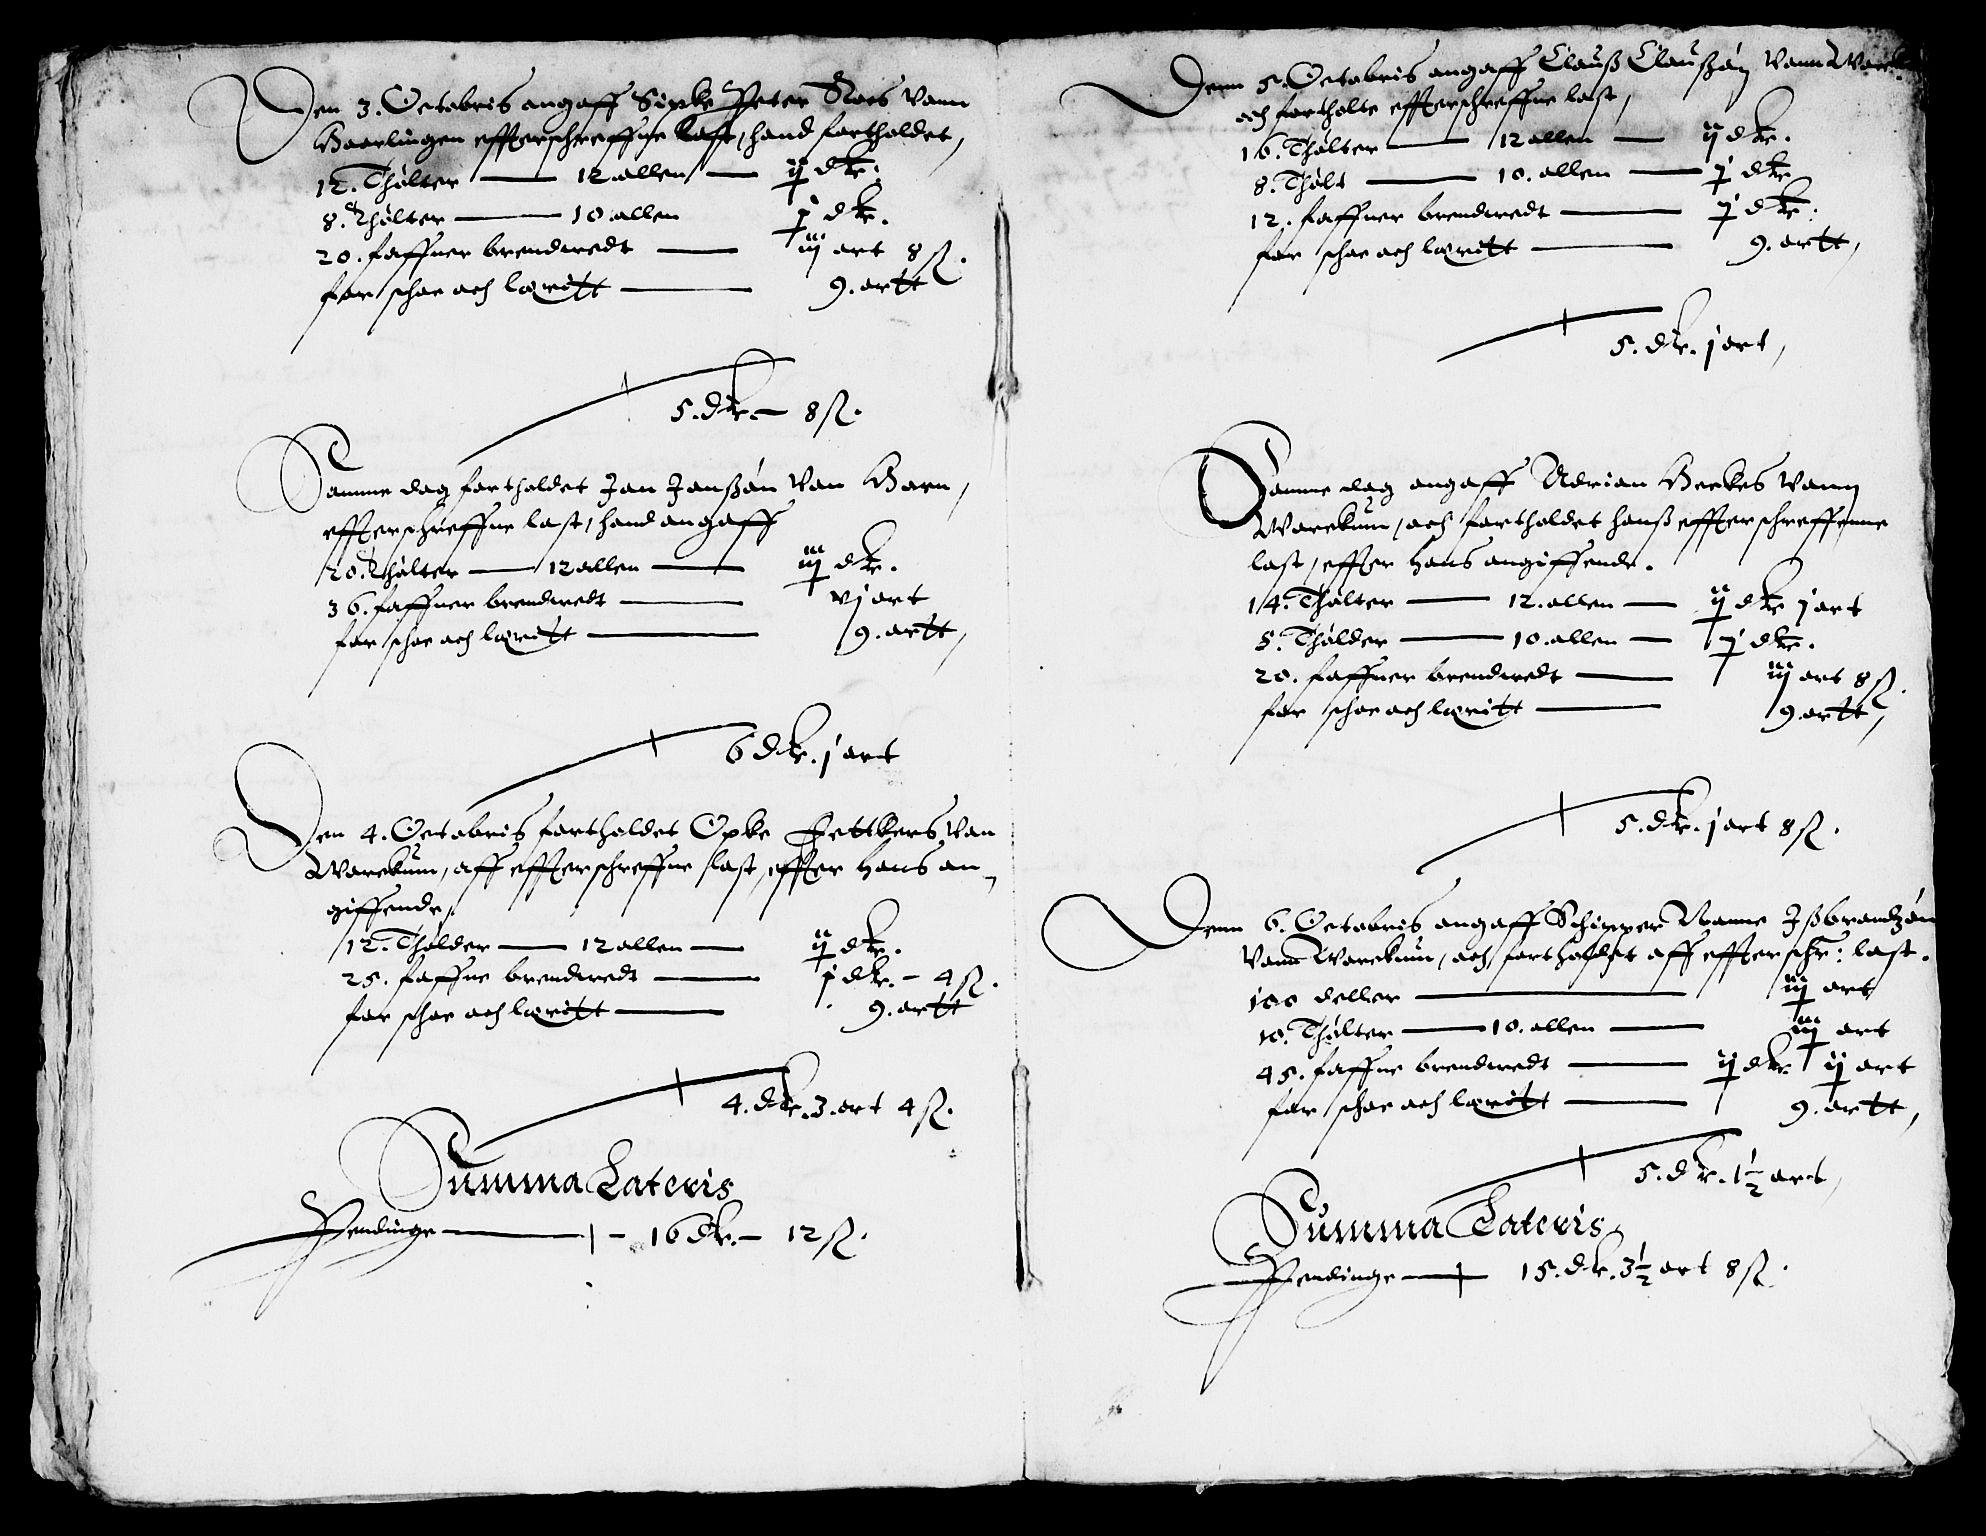 Den 3. Octobris angaff Sipke Peter Roes vann
Haarlingen effterschreffne last, hand fortholdet,
12. Thølter — 12 allen — ij dlr.
8. Thølter — 10 allen j dlr.
20. faffner brendwedt — iij ort 8 ß.
for schoe och lørritt — 9. ortt
5. dlr. — 8 ß.
Samme dag fortholdet Jan Janßøn van Horn,
effterschreffne last, hand angaff
20. Thølter — 12 allen — iij dlr.
36. faffner brendwedt — vj ort
for schoe och lørritt — 9. ortt,
6 dlr. j ort
Den 4. Octobris fortholdet Opke Fettkers van
Warckum, aff effterschreffne last, effter hans an-
giffende,
12. Thølder — 12 allen — ij dlr.
25. faffne brendwedt — j dlr. — 4 ß.
for schoe och lørritt — 9. ortt
4. dlr. 3. ort 4 ß.
Summa Lateris
Pendinge — 16 dlr. — 12 ß.
Denn 5. Octobris angaff Clauß Claußøn vann
och fortholte effterschreffne last,
16. Thølter — 12 allen — ij dlr.
8. Thølt — 10. allen — j dlr
12. faffner brendwedt — j dlr.
for schoe och lørritt — 9. ortt,
5. dlr. j ort,
Samme dag angaff Adrian Heckes vann
Warckum, och fortholdet hanß effterschreffenne
last, effter hans angiffende.
14. Thølter — 12. allen — ij dlr j ort
8. Thølder — 10. allen — j dlr.
20. faffner brendwedt — iij ort 8 ß.
for schoe och lørritt — 9. ortt,
5. dlr. j ort 8 ß.
Denn 6. Octobris angaff Schipper Nanne Jßbrandzøn
vann Warckum, och fortholdet aff effterschr: last.
100 deller — iij ort
10. Thølter — 10. allen — iij ort
45. faffne brendwedt — ij dlr ij ort
for schoe och lørritt — 9. ortt,
5. dlr. 1 1/2 ort,
Summa Lateris
Pendinge — 15. dlr. 3 1/2 ort 8 ß.